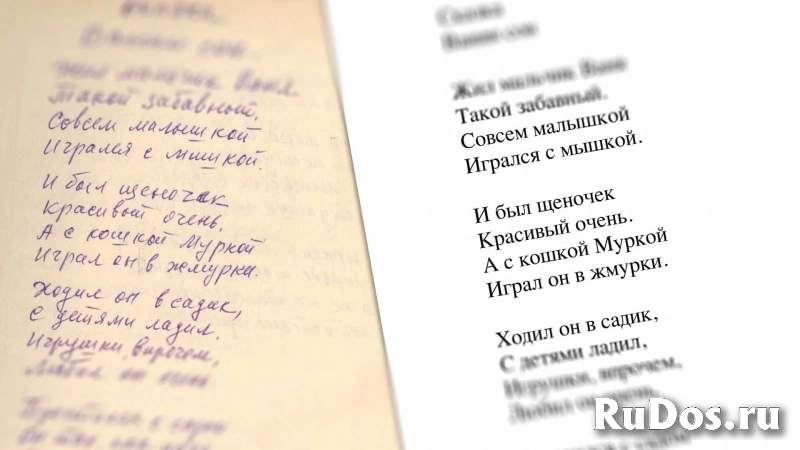 Жил мальчик Ваня
Такой забавный.
Совсем малышкой
Игрался с мишкой.
И был щеночек
Красивый очень.
А с кошкой Муркой
Играл он в жмурки.
Ходил он в садик,
С детями ладил,
Игрушки, впрочем,
Сказка
Ванин сон
Жил мальчик Ваня
Такой забавный.
Совсем малышкой
Игрался с мышкой.
И был щеночек
Красивый очень.
А с кошкой Муркой
Играл он в жмурки.
Ходил он в садик,
С детями ладил,
Игрушки, впрочем,
Любил он очень.
RuDos.ru